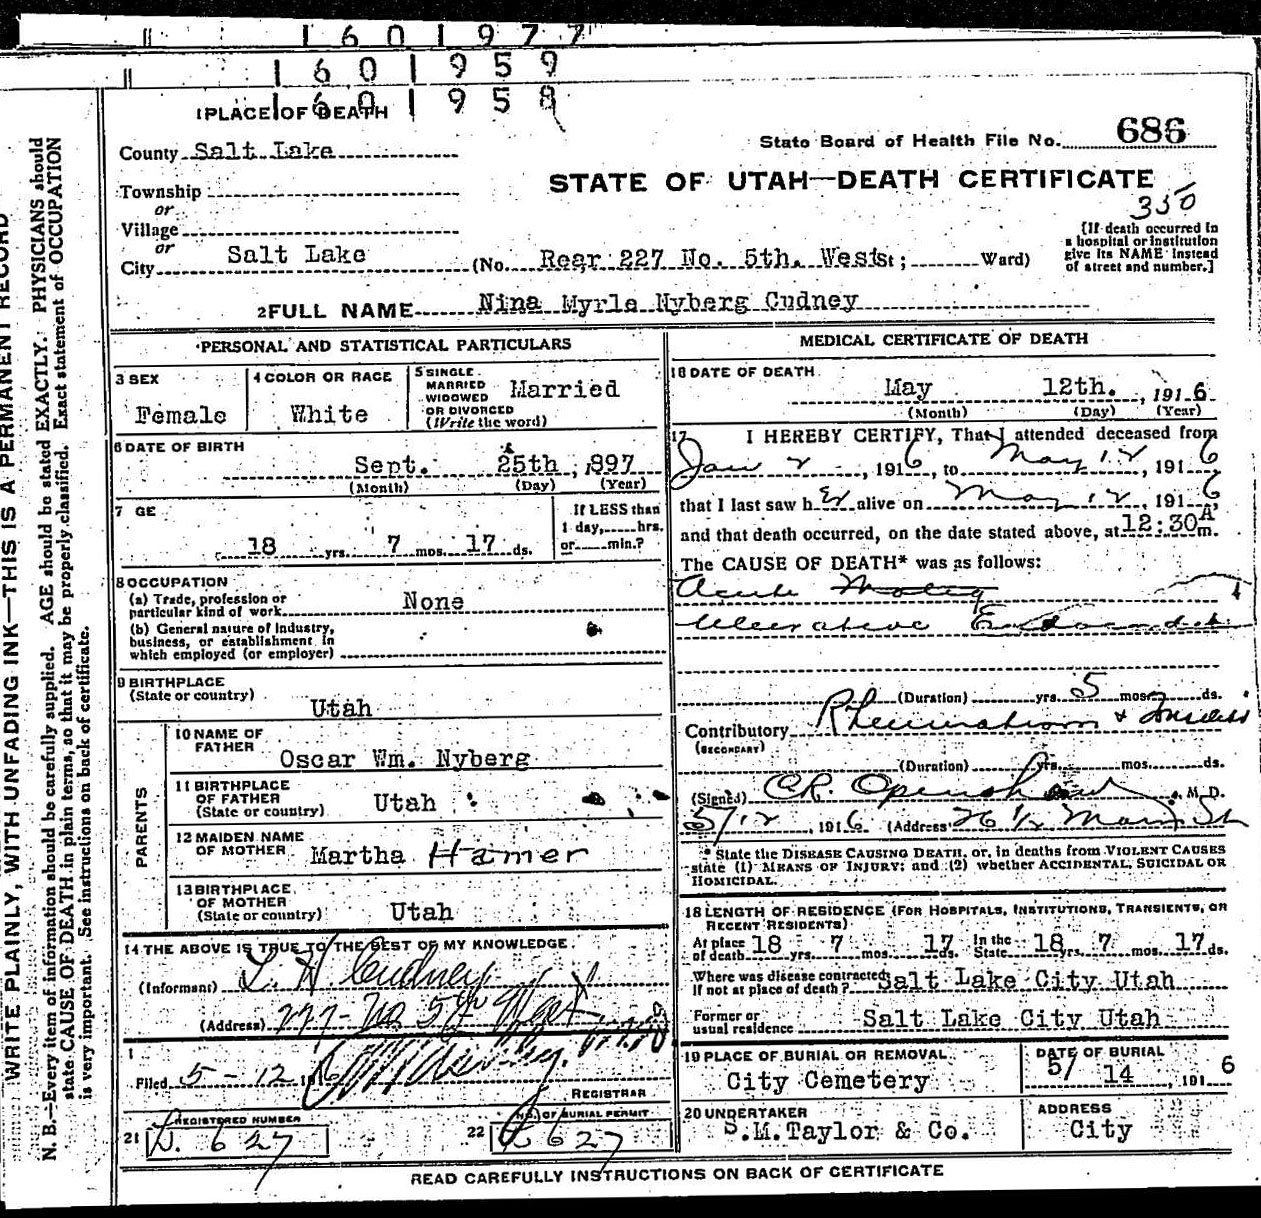 1601977
1601959
1601958
1 PLACE OF DEATH
State Board of Health File No. 686
County Salt Lake
STATE OF UTAH—DEATH CERTIFICATE
350
Township
or
Village
or
City Salt Lake (No. Rear 227 No. 5th. West St; Ward)
[If death occurred in
a hospital or institution
give its NAME instead
of street and number.]
2 FULL NAME Nina Myrle Nyberg Cudney
PERSONAL AND STATISTICAL PARTICULARS
3 SEX
Female
4 COLOR OR RACE
White
5 SINGLE
MARRIED
WIDOWED
OR DIVORCED
(Write the word)
Married
6 DATE OF BIRTH
Sept. 25th, 1897
(Month) (Day) (Year)
7 GE
18 yrs. 7 mos. 17 ds.
If LESS than
1 day, hrs.
or min.?
8 OCCUPATION
(a) Trade, profession or
particular kind of work None
(b) General nature of Industry,
business, or establishment in
which employed (or employer)
9 BIRTHPLACE
(State or country)
Utah
PARENTS
10 NAME OF
FATHER
Oscar Wm. Nyberg
11 BIRTHPLACE
OF FATHER
(State or country) Utah
12 MAIDEN NAME
OF MOTHER Martha Hamer
13 BIRTHPLACE
OF MOTHER
(State or country) Utah
14 THE ABOVE IS TRUE TO THE BEST OF MY KNOWLEDGE.
(Informant) L. H. Cudney
(Address) 227 No 5th West
Filed 5-12 1916
REGISTRAR
REGISTERED NUMBER
21 D. 627
NO. OF BURIAL PERMIT
22 627
MEDICAL CERTIFICATE OF DEATH
16 DATE OF DEATH
May 12th. , 1916
(Month) (Day) (Year)
17 I HEREBY CERTIFY, That I attended deceased from
Jan 2 , 1916, to May 12, 1916
that I last saw her alive on May 12, 1916,
and that death occurred, on the date stated above, at 12:30 A m.
The CAUSE OF DEATH* was as follows:
Acute
Ulcerative Endocarditis
(Duration) yrs. 5 mos. ds.
Contributory Rheumatism & Tonsilitis
(SECONDARY)
(Duration) yrs. mos. ds.
(Signed) C.R. Openshaw, M. D.
5/12, 1916 (Address) 26 1/2 Main St
* State the DISEASE CAUSING DEATH, or, in deaths from VIOLENT CAUSES
state (1) MEANS OF INJURY; and (2) whether ACCIDENTAL, SUICIDAL OR
HOMICIDAL.
18 LENGTH OF RESIDENCE (FOR HOSPITALS, INSTITUTIONS, TRANSIENTS, OR
RECENT RESIDENTS)
At place
of death 18 yrs. 7 mos. 17 ds. In the
State 18 yrs. 7 mos. 17 ds.
Where was disease contracted
If not at place of death? Salt Lake City Utah
Former or
usual residence Salt Lake City Utah
19 PLACE OF BURIAL OR REMOVAL
City Cemetery
DATE OF BURIAL
5/ 14, 1916
20 UNDERTAKER
S.M.Taylor & Co.
ADDRESS
City
READ CAREFULLY INSTRUCTIONS ON BACK OF CERTIFICATE
WRITE PLAINLY, WITH UNFADING INK—THIS IS A PERMANENT RECORD
N. B.—Every item of information should be carefully supplied. AGE should be stated EXACTLY. PHYSICIANS should
state CAUSE OF DEATH in plain terms, so that it may be properly classified. Exact statement of OCCUPATION
is very important. See instructions on back of certificate.